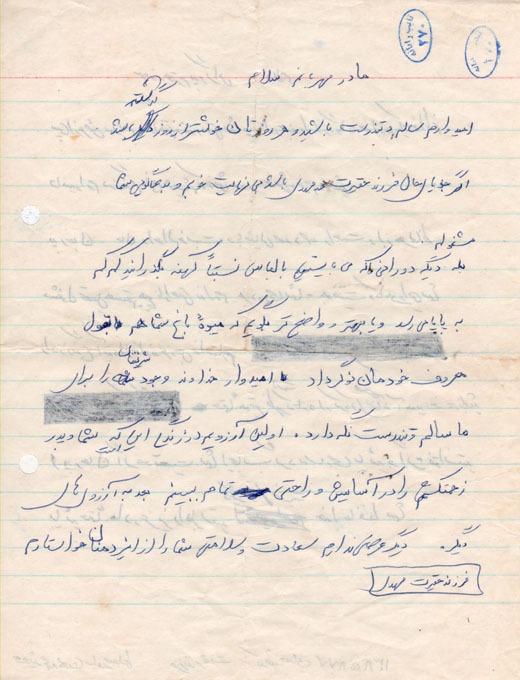 مادر مهربانم سلام
گذشته
امیدوارم سالم و تندرست باشید و هر روزتان خوشتر از روز باشد
اگر جویای حال فرزند حقیرت مهدی باشید می نهایت خوبم و به دعاگویی شما
مشغولم
بله دیگر دورانی که می بایستی با لباس نسبتاً کهنه بگذرانید که که
به پایان می رسد و یا بهتر و واضح تر بگویم که میوهٔ باغ شما هم بقول
معروف خودمان نوگرداد امیدوار خداوند وجود شریفتان را برای
ما سالم و تندرست نگه دارد. اولین آرزویم در زندگی این که شما و پدر
زحمتکشم را در آسایش و راحتی تمام ببینم جدا به آرزوهای
دیگر. دیگر عرضی ندارم سعادت و سلامتی شما را از ایزد منان خواستارم
فرزند حقیرت مهدی